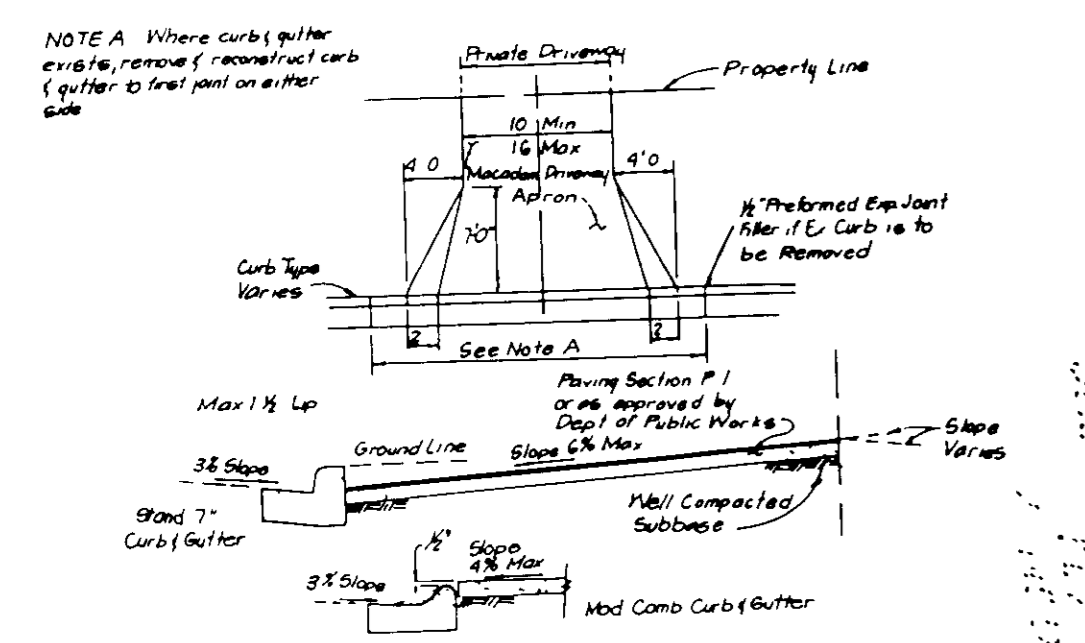 NOTE A Where curb & gutter
exists, remove & reconstruct curb
& gutter to first joint on either
side
Private Driveway
Property Line
10 Min
16 Max
4 0
4'0
Macadam Driveway
Apron
7'0"
½" Preformed Exp Joint
Filler if Ex Curb is to
be Removed
Curb Type
Varies
2
2
See Note A
Paving Section P 1
or as approved by
Dept of Public Works
Max 1 ½ Lip
Ground Line
Slope 6% Max
Slope
Varies
3% Slope
Well Compacted
Subbase
Stand 7"
Curb & Gutter
½"
Slope
4% Max
3% Slope
Mod Comb Curb & Gutter